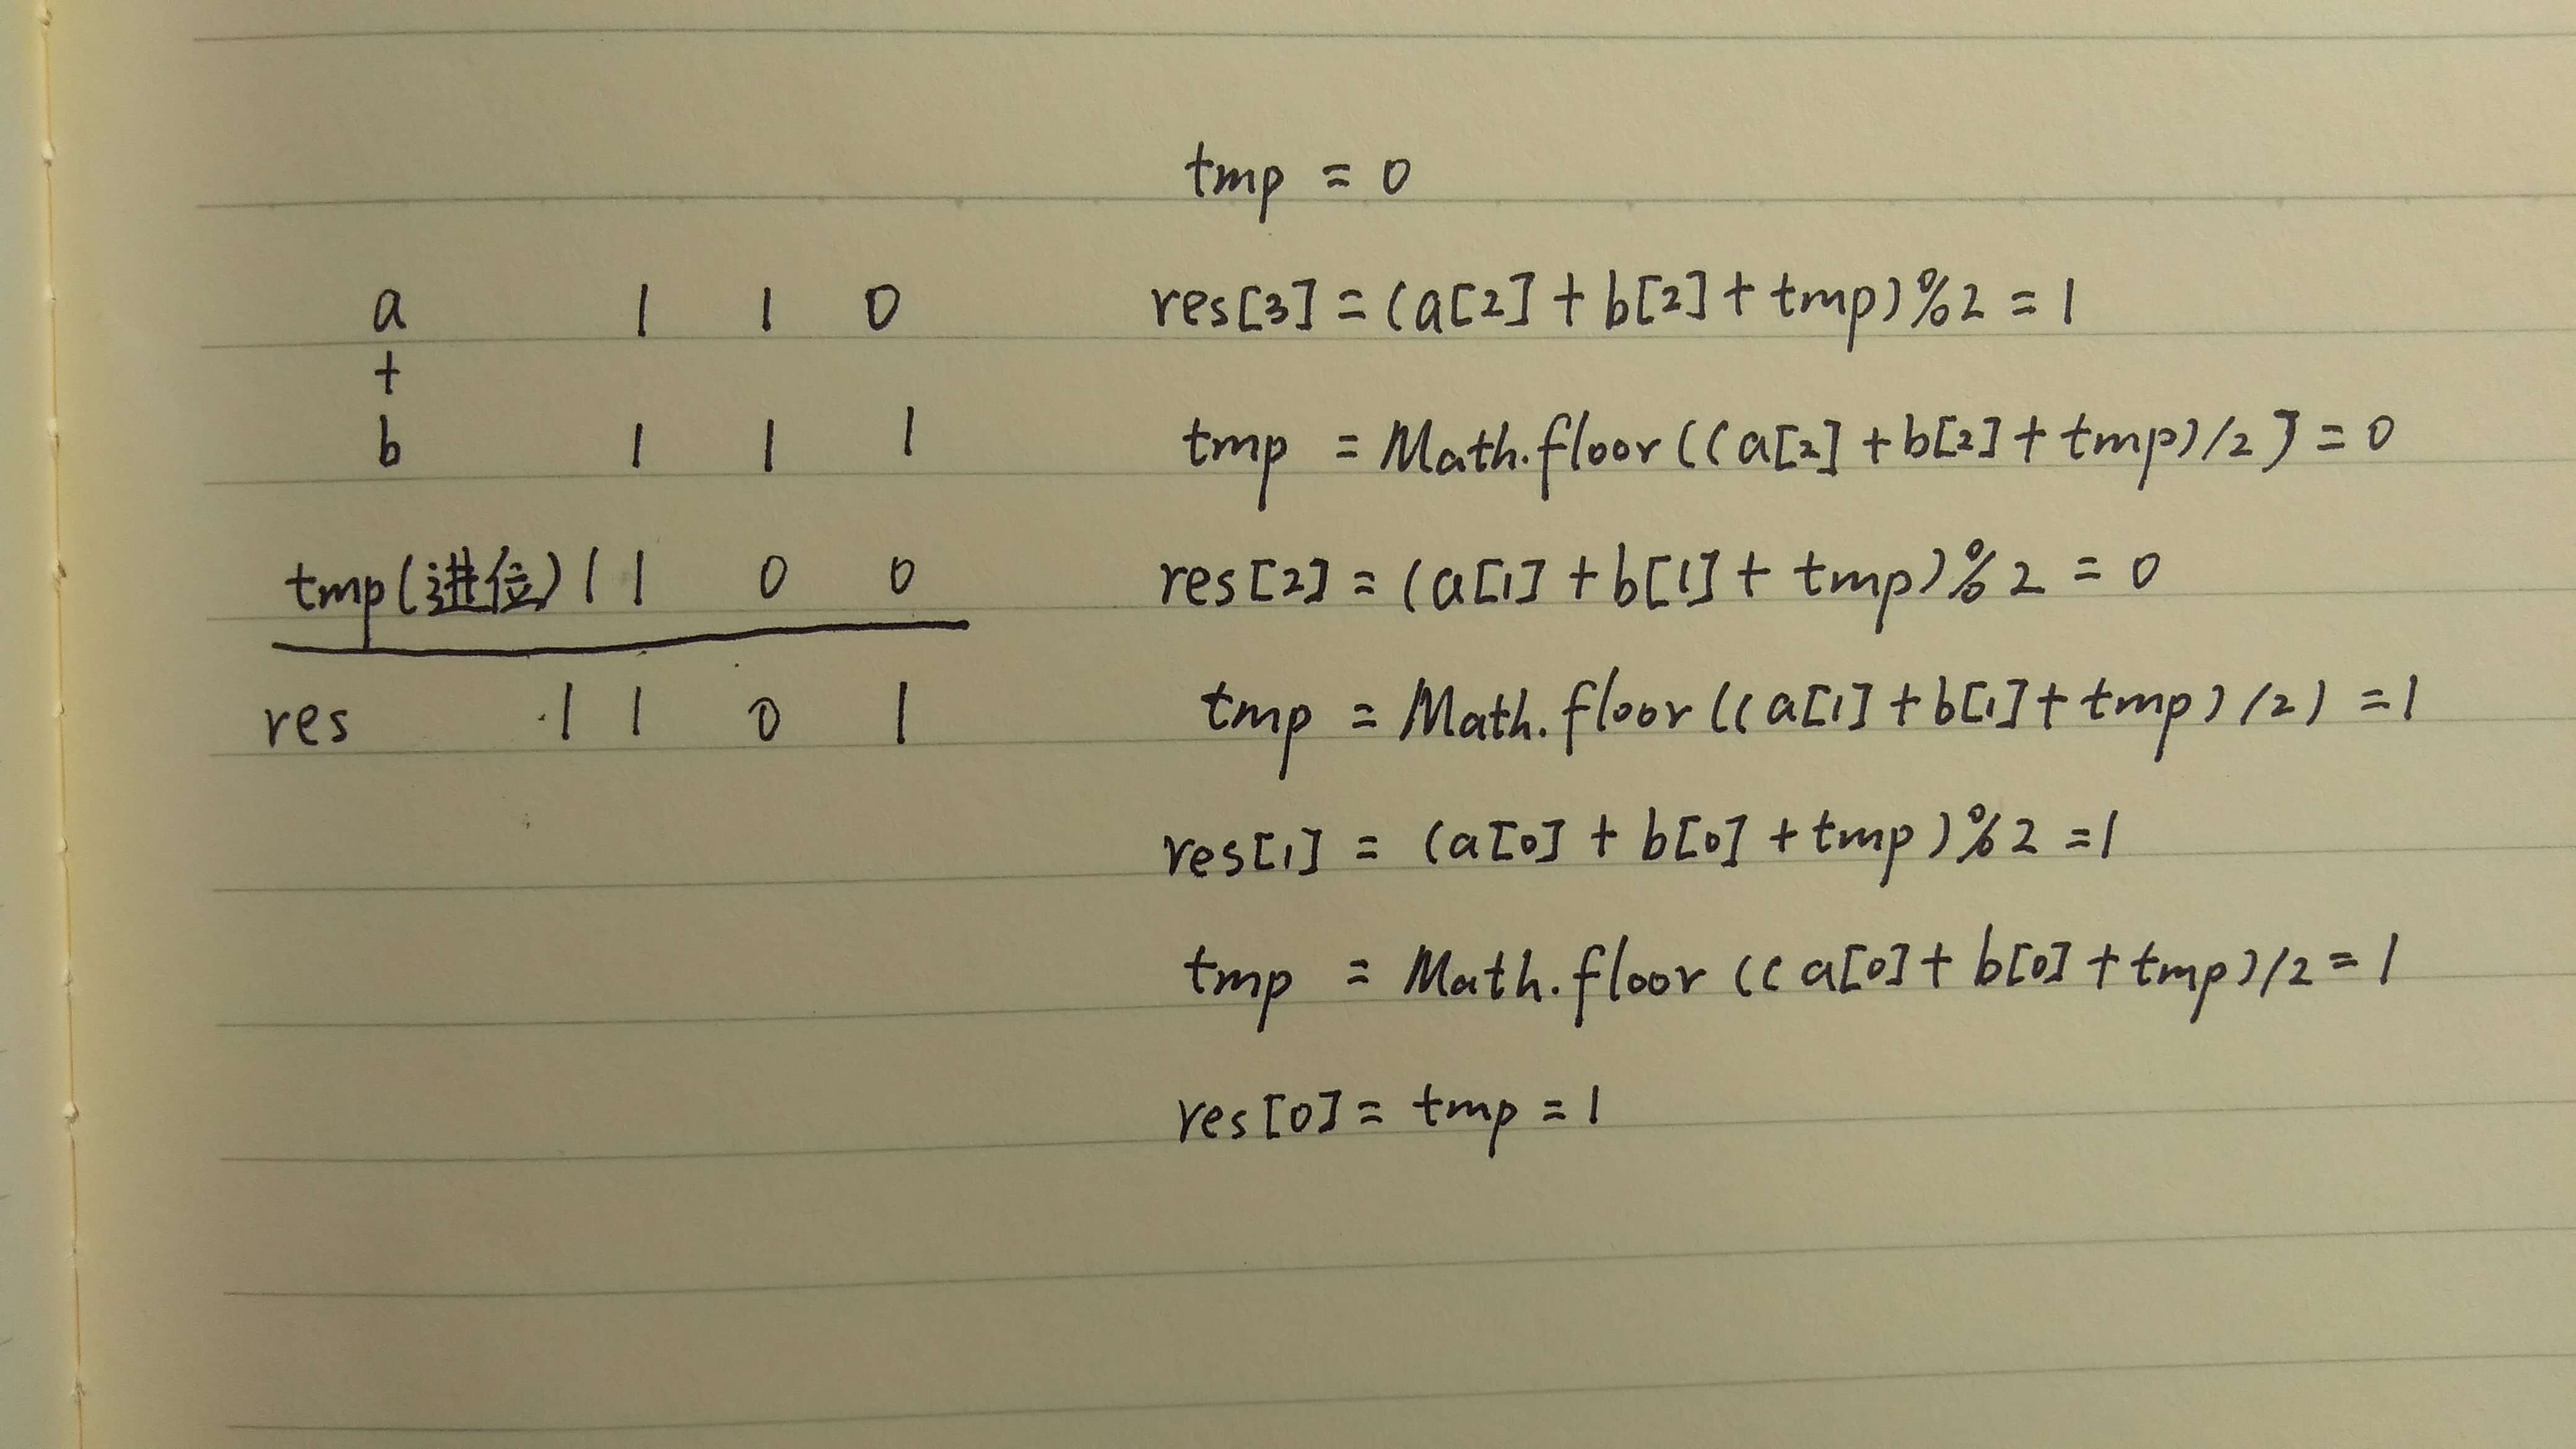 tmp = 0
a 1 1 0
+
b 1 1 1
tmp(进位) 1 1 0 0
res 1 1 0 1
res[3] = (a[2] + b[2] + tmp) % 2 = 1
tmp = Math.floor((a[2] + b[2] + tmp) / 2) = 0
res[2] = (a[1] + b[1] + tmp) % 2 = 0
tmp = Math.floor((a[1] + b[1] + tmp) / 2) = 1
res[1] = (a[0] + b[0] + tmp) % 2 = 1
tmp = Math.floor((a[0] + b[0] + tmp) / 2 = 1
res[0] = tmp = 1